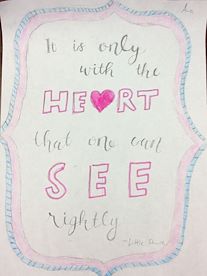 It is only
with the
HE♥RT
that one can
SEE
rightly
~Little Prince